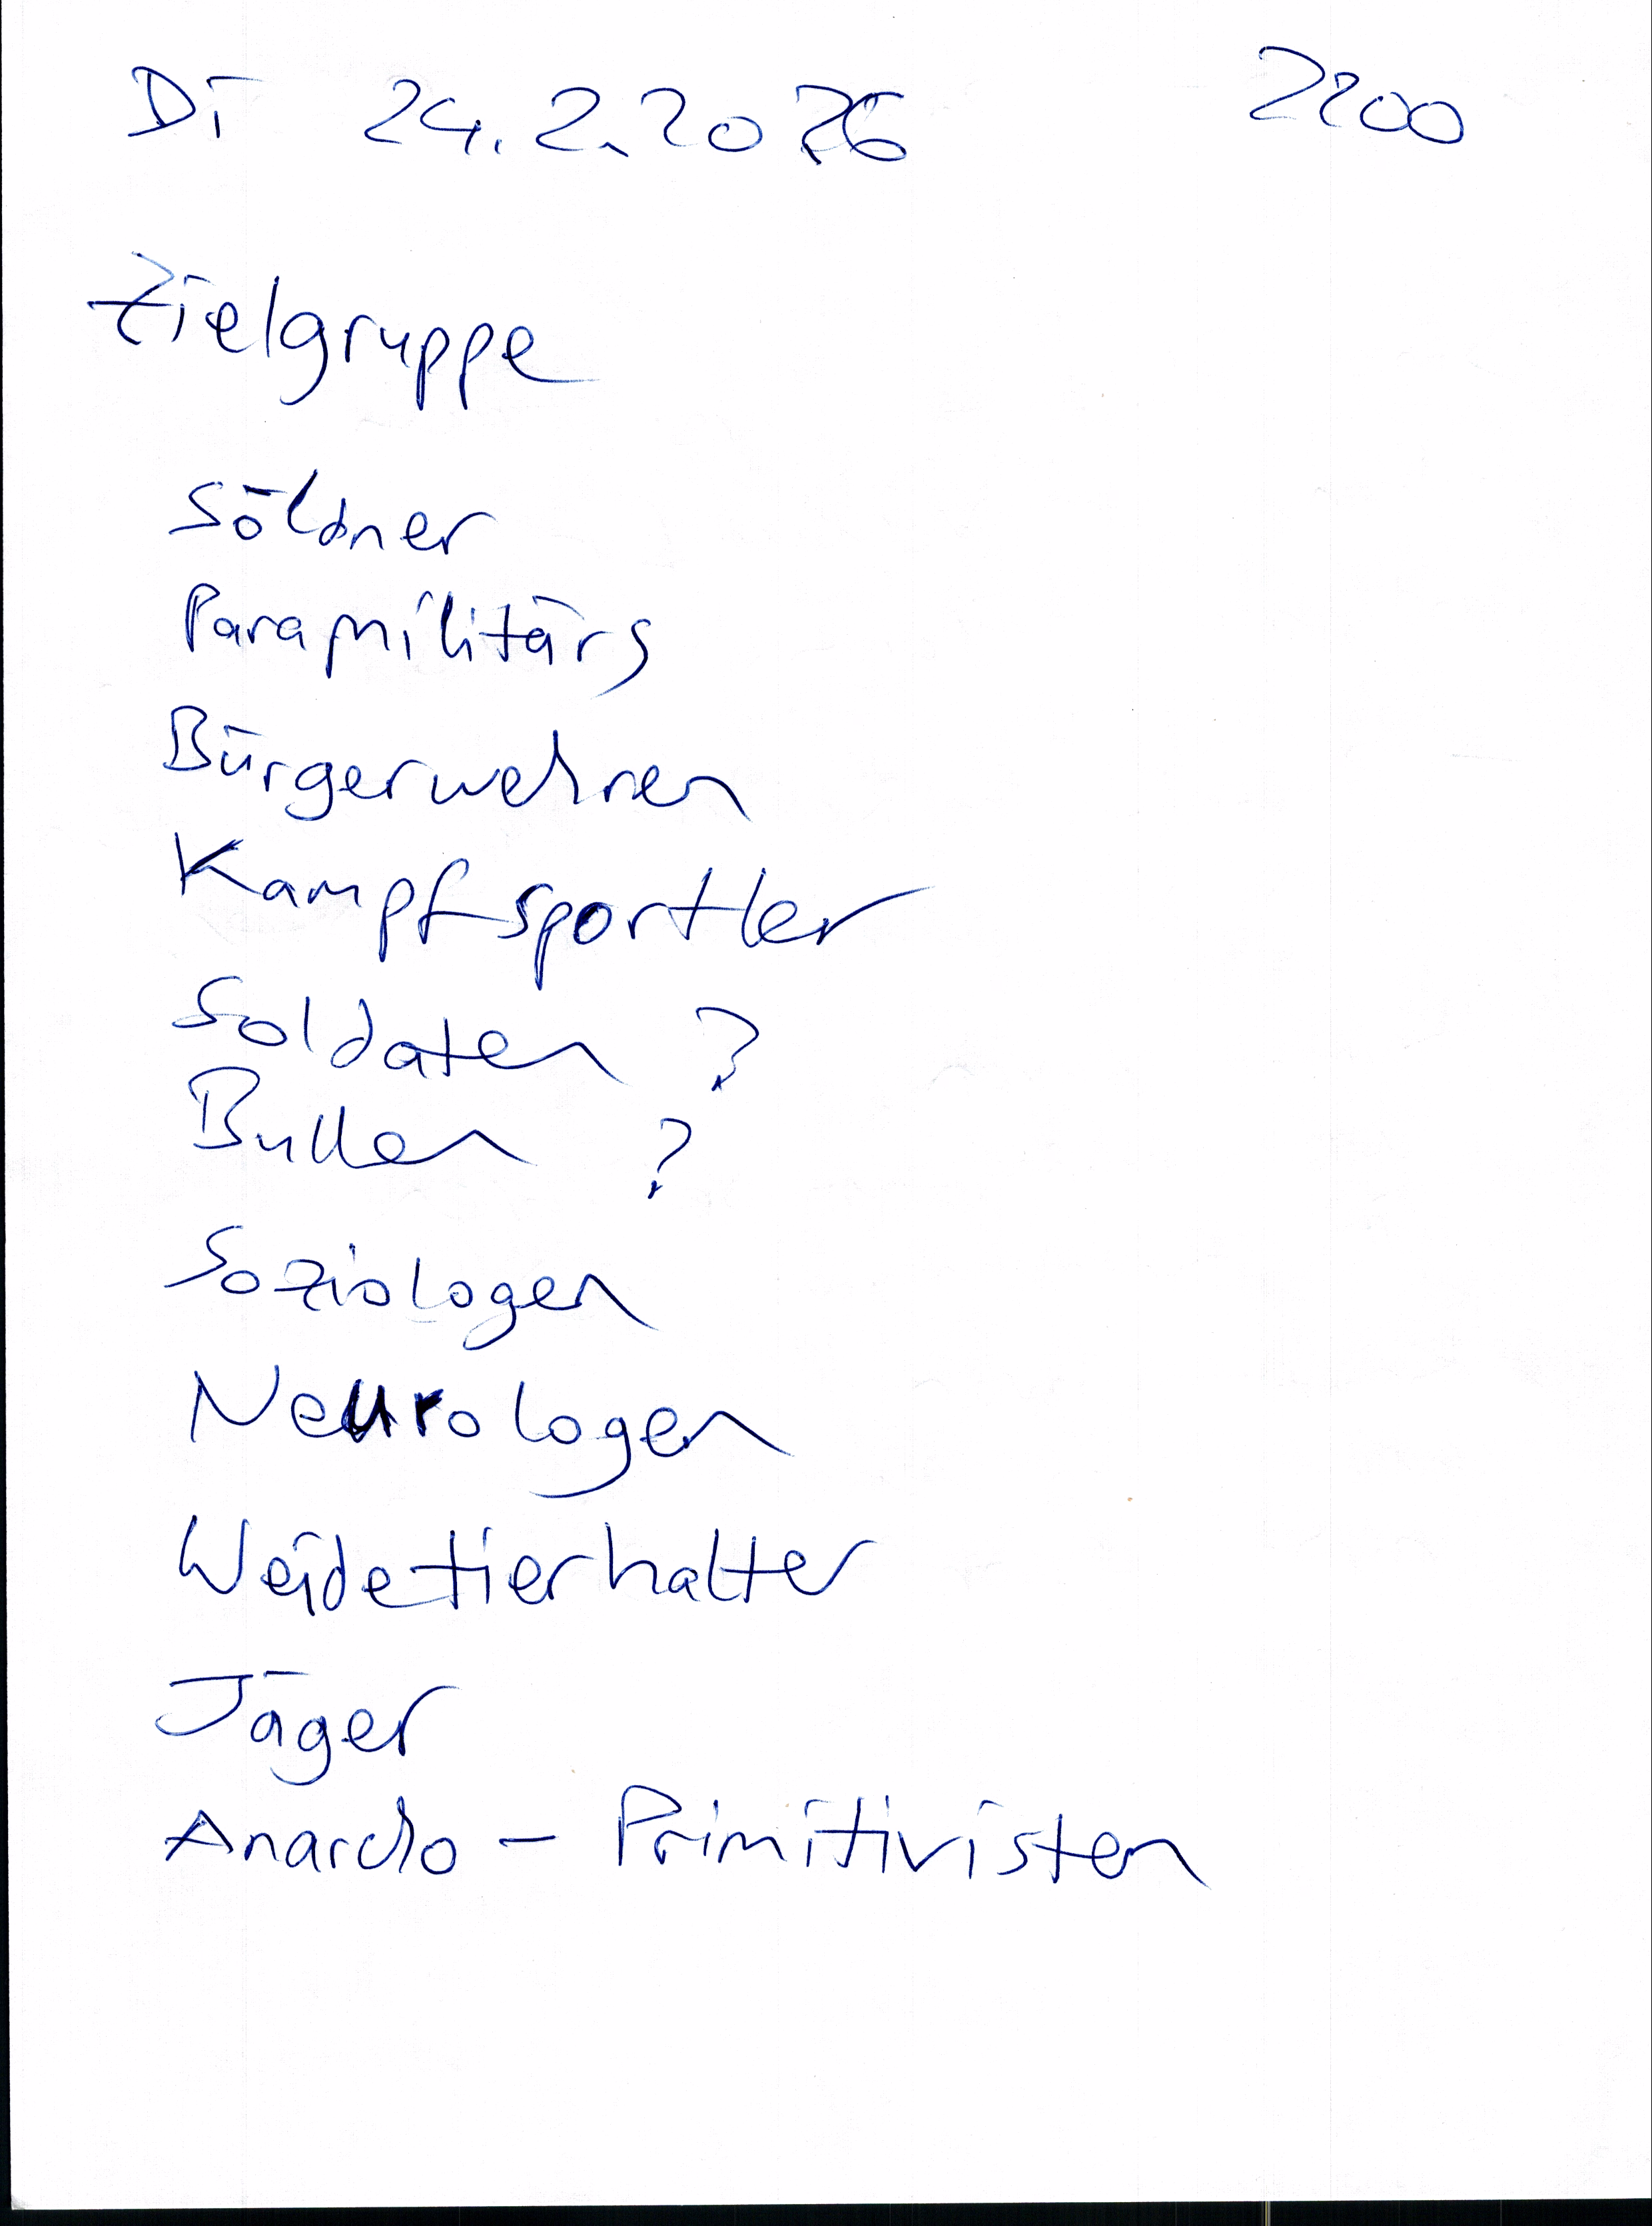 Di 24.2.2026 2200
Zielgruppe
Söldner
Paramilitärs
Bürgerwehren
Kampfsportler
Soldaten ?
Bullen ?
Soziologen
Neurologen
Weidetierhalter
Jäger
Anarcho - Primitivisten